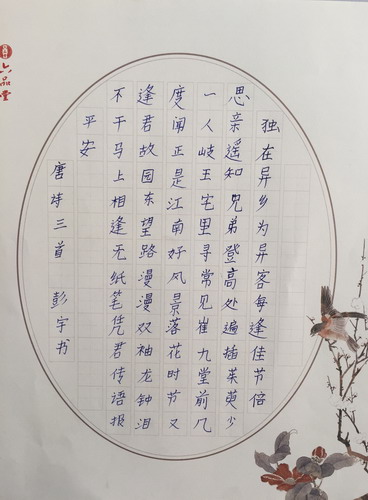 独在异乡为异客每逢佳节倍
思亲遥知兄弟登高处遍插茱萸少
一人岐王宅里寻常见崔九堂前几
度闻正是江南好风景落花时节又
逢君故园东望路漫漫双袖龙钟泪
不干马上相逢无纸笔凭君传语报
平安
唐诗三首 彭宇书
六品堂